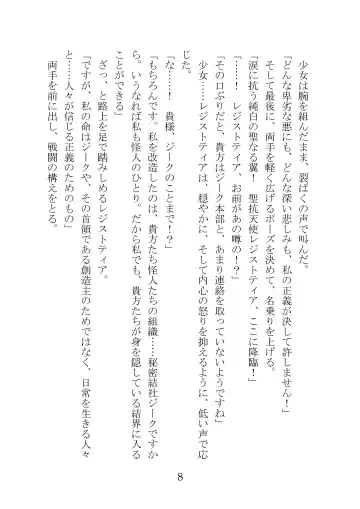 少女は腕を組んだまま、裂ぱくの声で叫んだ。
「どんな卑劣な悪にも、どんな深い悲しみも、私の正義が決して許しません！」
そして最後に、両手を軽く広げるポーズを決めて、名乗りを上げる。
「涙に抗う純白の聖なる翼！　聖抗天使レジストティア、ここに降臨！」
「……！　レジストティア、お前があの噂の！？」
「その口ぶりだと、貴方はジーク本部と、あまり連絡を取っていないようですね」
少女……レジストティアは、穏やかに、そして内心の怒りを抑えるように、低い声で応
じた。
「な……！　貴様、ジークのことまで！？」
「もちろんです。私を改造したのは、貴方たち怪人たちの組織……秘密結社ジークですか
ら。いうなれば私も怪人のひとり。だから私でも、貴方たちが身を隠している結界に入る
ことができる」
ざっ、と路上を足で踏みしめるレジストティア。
「ですが、私の命はジークや、その首領である創造主のためではなく、日常を生きる人々
と……人々が信じる正義のためのもの」
両手を前に出し、戦闘の構えをとる。
8